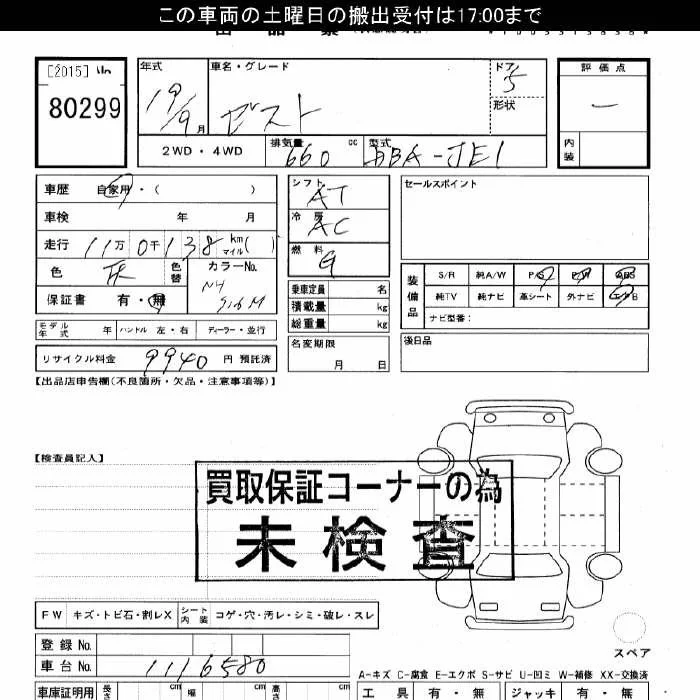 この車両の土曜日の搬出受付は17:00まで
[2015]
80299
年式 19/9月
車名・グレード ゼスト
ドア 5
形状
評価点 ー
内装
2WD・4WD
排気量 660 cc
型式 DBA-JE1
車歴 自家用・( )
車検 年 月
走行 11万0千138 km マイル( )
色 灰 色替
カラーNo. NH
保証書 有・無
シフト AT
冷房 AC
燃料 G
乗車定員 名
積載量 kg
総重量 kg
セールスポイント
装備品
S/R 純A/W P/S P/W ABS
純TV 純ナビ 革シート 外ナビ エアB
ナビ型番:
モデル年式 年 ハンドル 左・右 ディーラー・並行
名変期限 月 日
後日品
リサイクル料金 9940 円 預託済
【出品店申告欄(不良箇所・欠品・注意事項等)】
【検査員記入】
買取保証コーナーの為
未検査
FW キズ・トビ石・割レX シート内装 コゲ・穴・汚レ・シミ・破レ・スレ
スペア
登録No.
車台No. 1116580
A-キズ C-腐食 E-エクボ S-サビ U-凹ミ W-補修 XX-交換済
車庫証明用 長さ cm 幅 cm 高さ cm
工具 有・無 ジャッキ 有・無